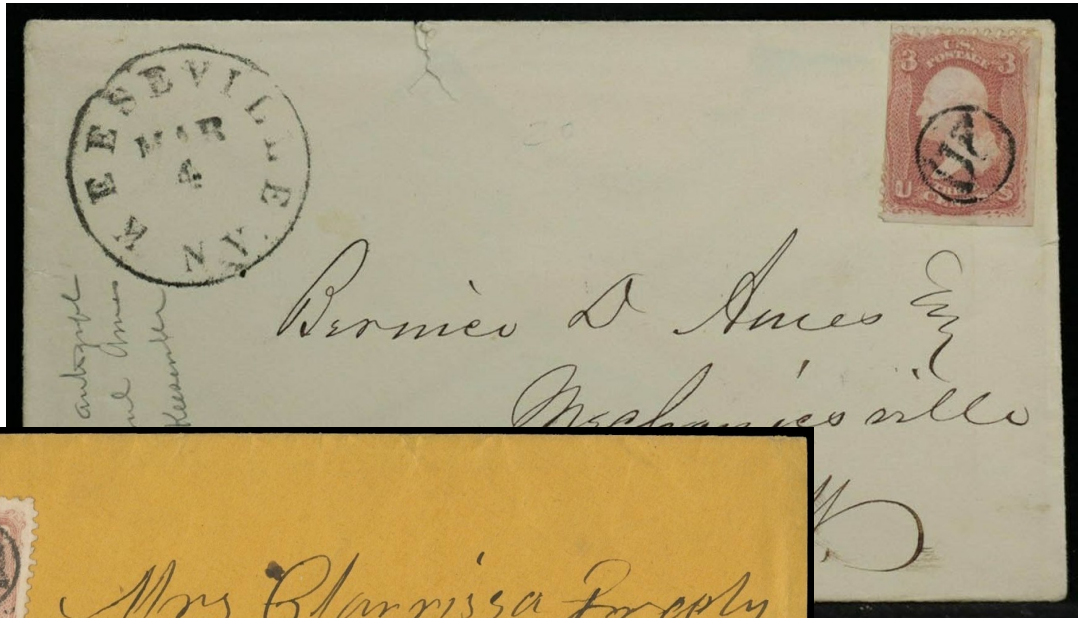 KEESEVILLE N.Y.
MAR
4
3 U.S. 3
POSTAGE
U S
Bernice D Ames Esq
Mechanicsville
autograph
Ames
Keeseville
Mrs Clarrissa